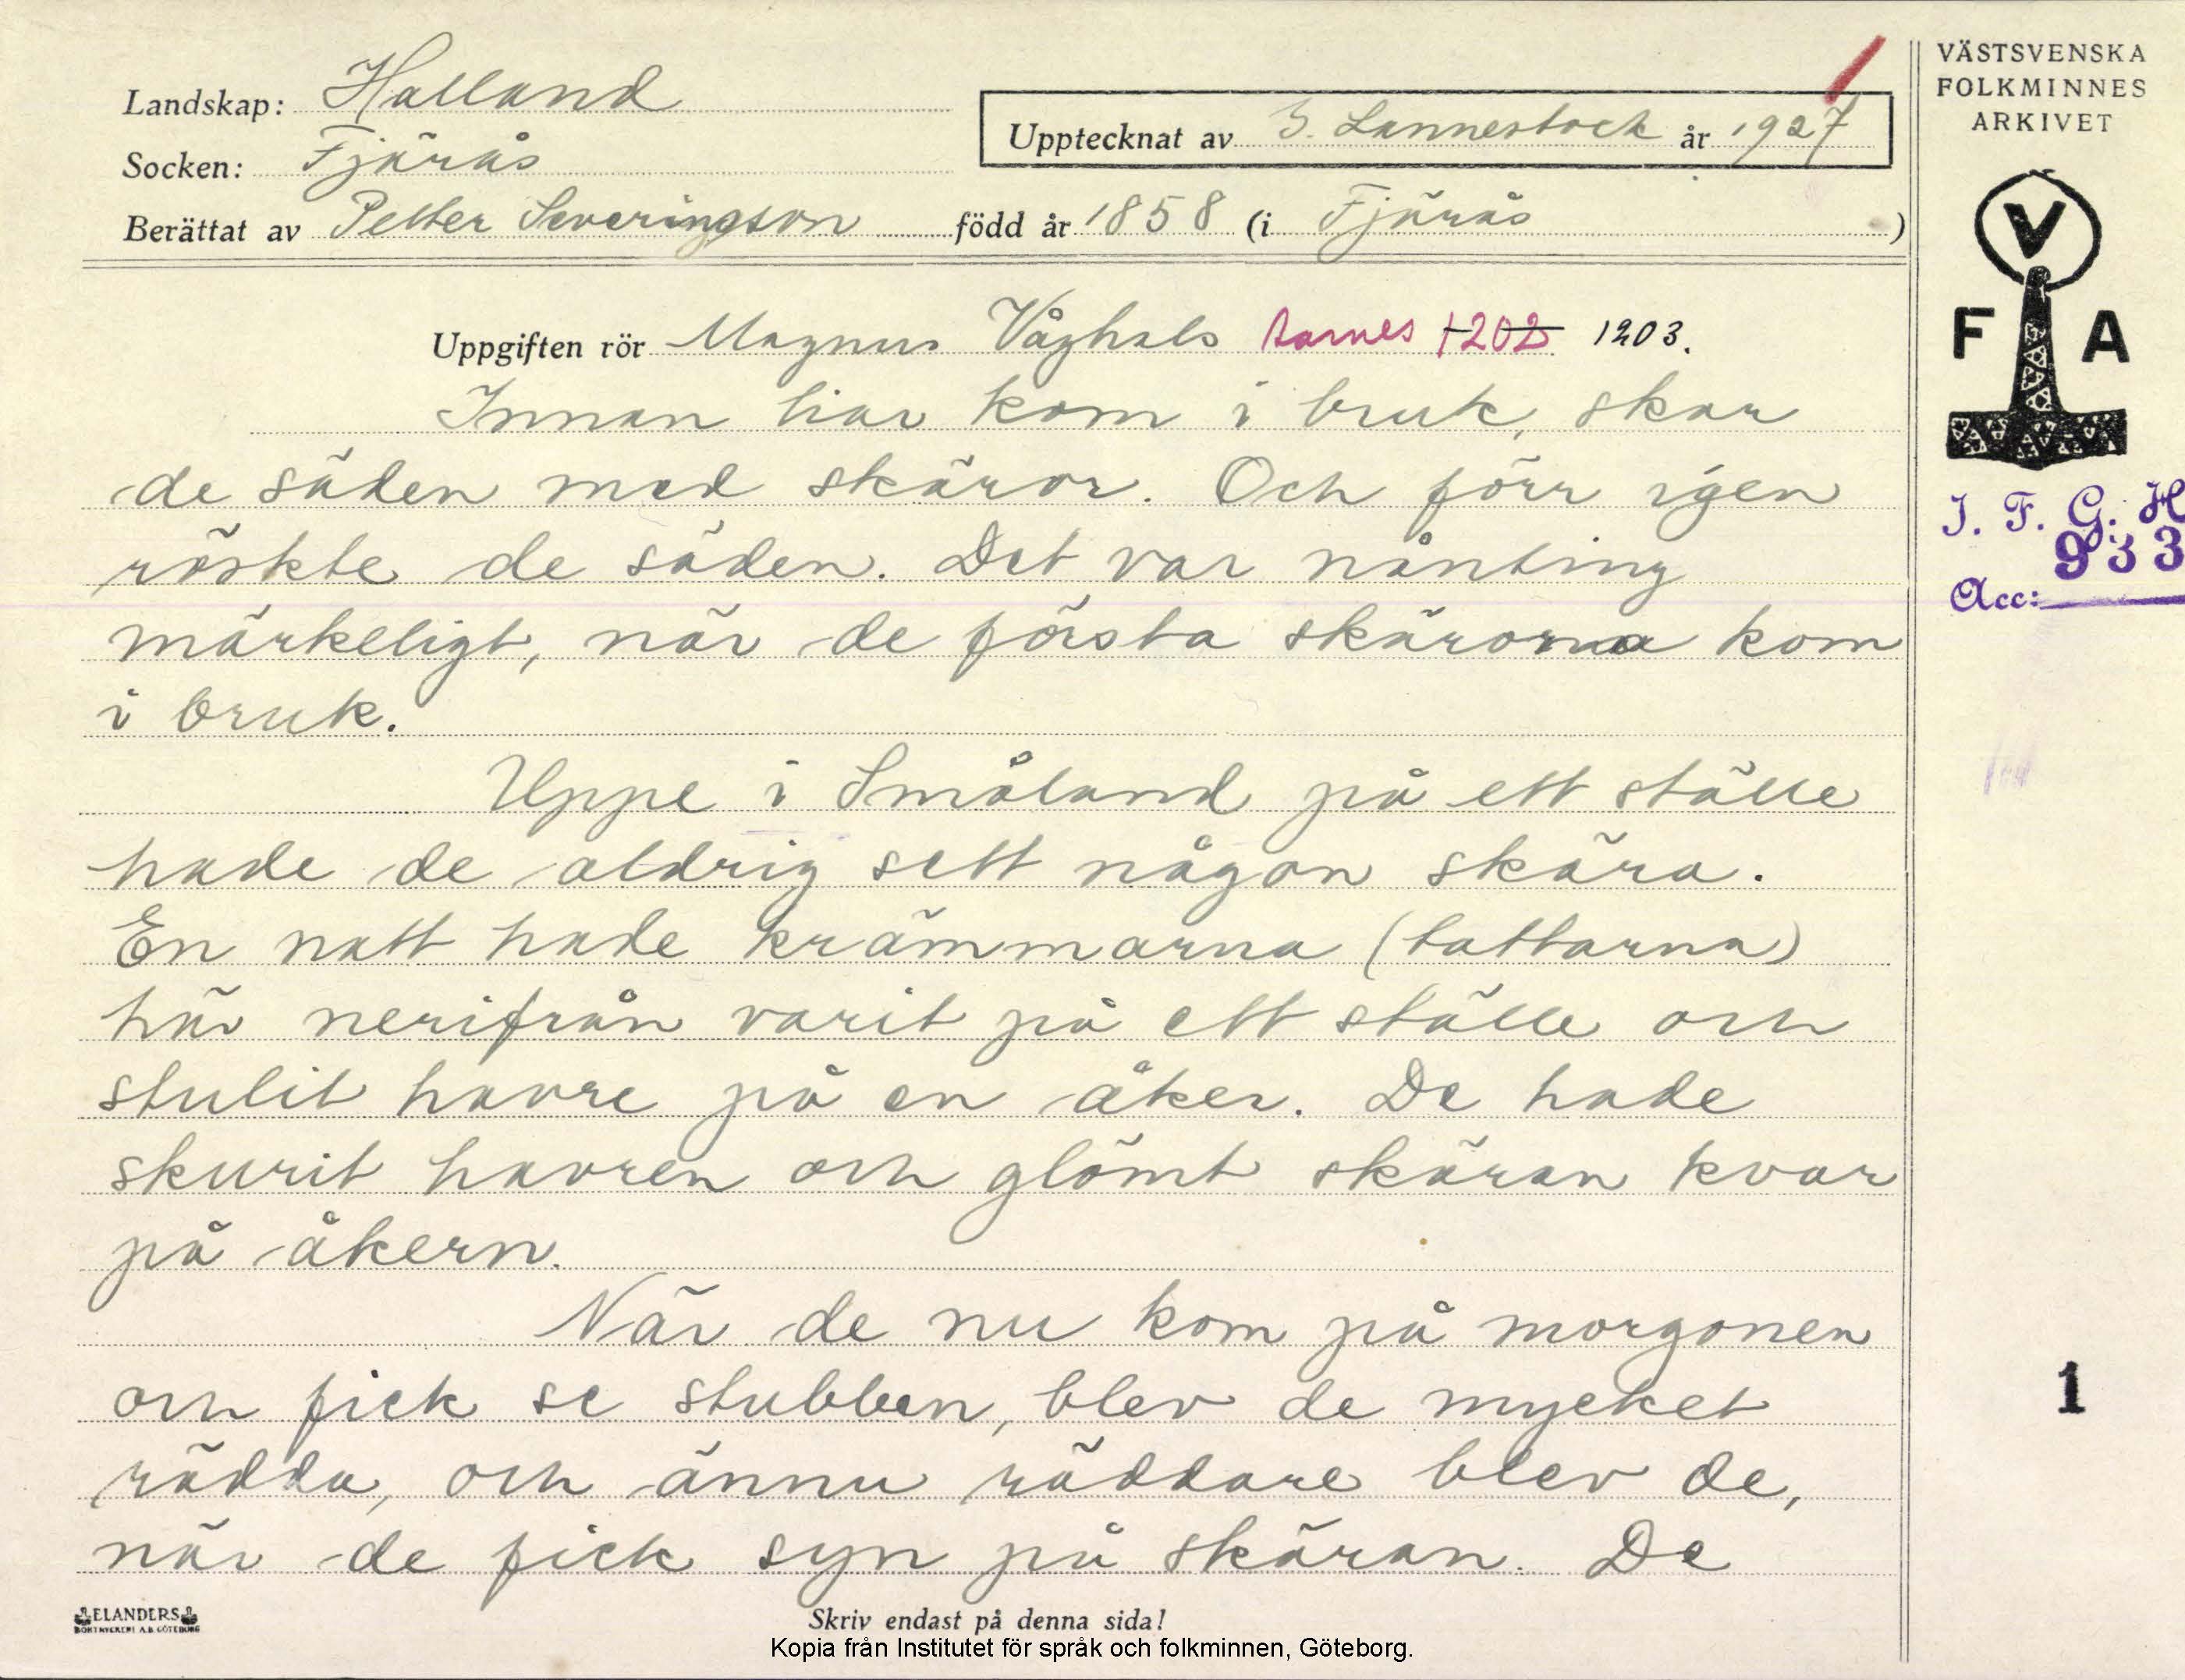 Landskap: Halland
Socken: Fjärås
Berättat av Petter Severingson född år 1858 (i Fjärås)
Upptecknat av S. Lannestock år 1927
VÄSTSVENSKA
FOLKMINNES
ARKIVET
V
F A
I. F. G. H
933
Acc:
Uppgiften rör Magnus Våghals Aarnes 1202 1203.
Innan liar kom i bruk, skar
de säden med skäror. Och förr igen
röskte de säden. Det var nånting
märkeligt, när de första skärorna kom
i bruk.
Uppe i Småland på ett ställe
hade de aldrig sett någon skära.
En natt hade krämmarna (tattarna)
här nerifrån varit på ett ställe och
stulit havre på en åker. De hade
skurit havren och glömt skäran kvar
på åkern.
När de nu kom på morgonen
och fick se stubben, blev de mycket
rädda, och ännu räddare blev de,
när de fick syn på skäran. De
1
ELANDERS
BOKTRYCKERI A.B. GÖTEBORG
Skriv endast på denna sida!
Kopia från Institutet för språk och folkminnen, Göteborg.